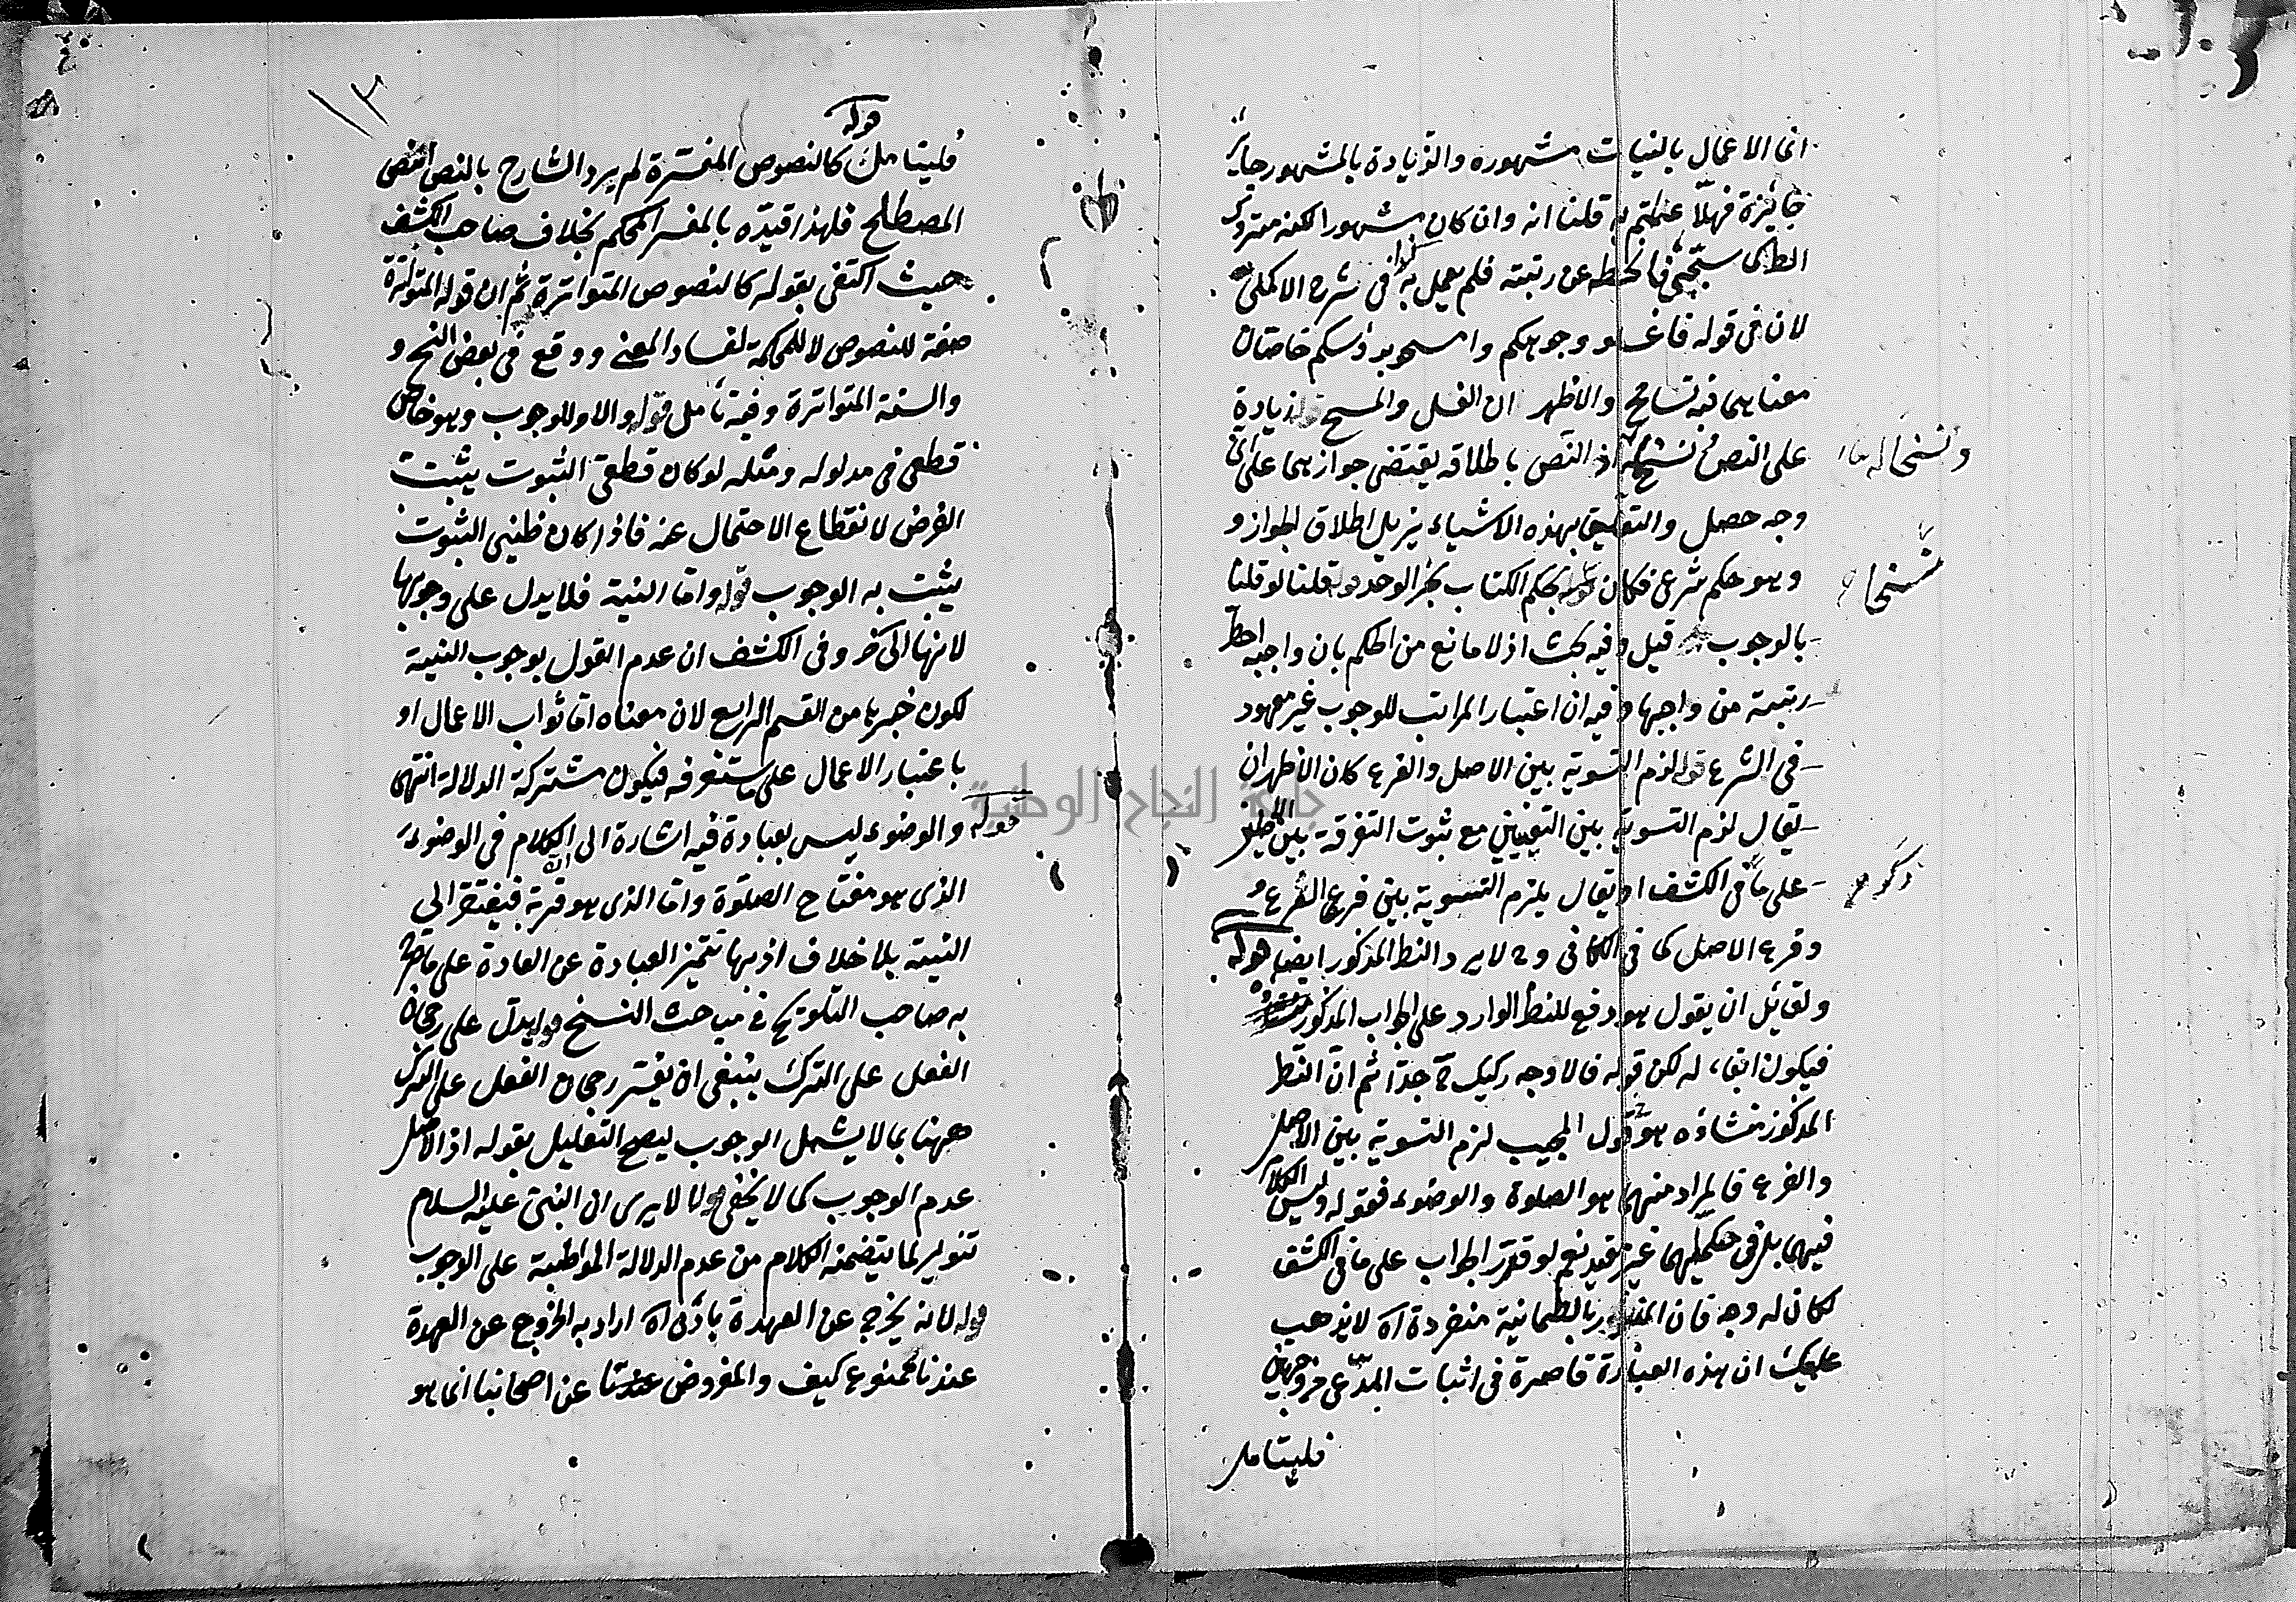 انما الاعمال بالنيات مشهوره والزيادة بالمشهور جايز
جائزة فهلا عملتم به قلنا انه وان كان مشهورا لكنه متروك
الظاهر فانحط عن رتبته فلم يعمل به كذا فى شرح الاكمل
لان فى قوله فاغسلو وجوهكم وامسحو برؤسكم خاصان
معناهما فيه تسامح والاظهر ان الغسل والمسح زيادة
على النص نسخ اذ النص باطلاقه يقتضى جوازهما على اى
وجه حصل والتعليق بهذه الاشياء يزيل اطلاق الجواز و
وهو حكم شرعى فكان لحكم الكتاب بخبر الواحد قوله قلنا لو قلنا
بالوجوب قيل وفيه بحث اذ لا مانع من الحكم بان واجبه احط
رتبة من واجبها وفيه ان اعتبار المراتب للوجوب غير معهود
فى الشرع قوله لزم التسوية بين الاصل والفرع كان الاظهر ان
يقال لزم التسوية بين التبعين مع ثبوت التفرقة بين الاصلين
على ما فى الكشف او يقال يلزم التسوية بين فرع الفرع
وفرع الاصل كما فى الكافى و ح لا يرد النظر المذكور ايضا قوله
ولقائل ان يقول هو دفع للنظر الوارد على الجواب المذكور
فيكون ابقاء له لكن قوله فالاوجه ركيك ح جدا ثم ان النظر
المذكور منشاؤه هو قول المجيب لزم التسوية بين الاصل
والفرع فالمراد منهما هو الصلوة والوضوء فقوله وليس الكلام
فيهما بل فى حكميهما غير مفيد نعم لو قرر الجواب على ما فى الكشف
لكان له وجه فان بالطمانية منفردة اه لا يذهب
عليك ان هذه العبارة قاصرة فى اثبات المدعى من وجهين
فليتامل
ونسخا له
نسخا
ذكره
١٢
فليتامل قوله كالنصوص المفسرة لم يرد الشارح بالنص النص
المصطلح فلهذا قيده بالمفسر المحكم بخلاف صاحب الكشف
حيث اكتفى بقوله كالنصوص المتواترة ثم ان قوله المتواترة
صفة للنصوص لا للمحكمة لفساد المعنى ووقع فى بعض النسخ و
والسنة المتواترة وفيه تأمل قوله والامر للوجوب وهو خاص
قطعى فى مدلوله ومثله لو كان قطعى الثبوت يثبت
الفرض لانقطاع الاحتمال عنه فاذا كان ظنى الثبوت
يثبت به الوجوب قوله واما النية فلا يدل على وجوبها
لانها الى اخر وفى الكشف ان عدم القول بوجوب النية
لكون خبرها من القسم الرابع لان معناه اما ثواب الاعمال او
باعتبار الاعمال على ما ستعرفه فيكون مشتركة الدلالة انتهى
قوله والوضوء ليس بعبادة فيه اشارة الى ان الكلام فى الوضوء
الذى هو مفتاح الصلوة واما الذى هو قربة فيفتقر الى
النية بلا خلاف اذ بها تتميز العبادة عن العادة على ما صرح
به صاحب التلويح فى مباحث النسخ قوله يدل على رجحان
الفعل على الترك ينبغى ان يفسر رجحان الفعل على الترك
ههنا بما لا يشمل الوجوب ليصح التعليل بقوله اذ الاصل
عدم الوجوب كما لا يخفى قوله الا يرى ان النبى عليه السلام
تنوير لما يتضمنه الكلام من عدم الدلالة المواظبة على الوجوب
قوله لانه يخرج عن العهدة بادنى اه اراد به الخروج عن العهدة
عندنا فممنوع كيف والمفروض عندنا عن اصحابنا انما هو
جامعة النجاح الوطنية